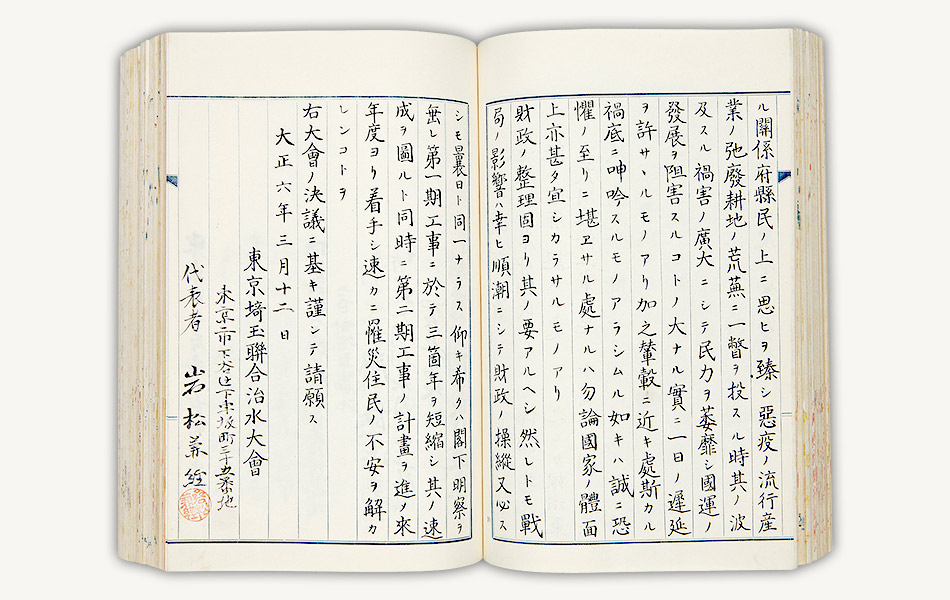 ル關係府縣民ノ上ニ思ヒヲ臻シ惡疫ノ流行産
業ノ弛廢耕地ノ荒蕪ニ一瞥ヲ投スル時其ノ波
及スル禍害ノ廣大ニシテ民力ヲ萎靡シ國運ノ
發展ヲ阻害スルコトノ大ナル實ニ一日ノ遲延
ヲ許サヽルモノアリ加之輦轂ニ近キ處斯カル
禍底ニ呻吟スルモノアラシムル如キハ誠ニ恐
懼ノ至リニ堪ヱサル處ナルハ勿論國家ノ體面
上亦甚タ宜シカラサルモノアリ
財政ノ整理固ヨリ其ノ要アルヘシ然レトモ戰
局ノ影響ハ幸ヒ順潮ニシテ財政ノ操縱又必ス
シモ曩日ト同一ナラス仰キ希クハ閣下明察ヲ
垂レ第一期工事ニ於テ三箇年ヲ短縮シ其ノ速
成ヲ圖ルト同時ニ第二期工事ノ計畫ヲ進メ來
年度ヨリ着手シ速カニ罹災住民ノ不安ヲ解カ
レンコトヲ
右大會ノ決議ニ基キ謹ンテ請願ス
大正六年三月十二日
東京埼玉聯合治水大會
東京市下谷區下車坂町三十五番地
代表者 岩松